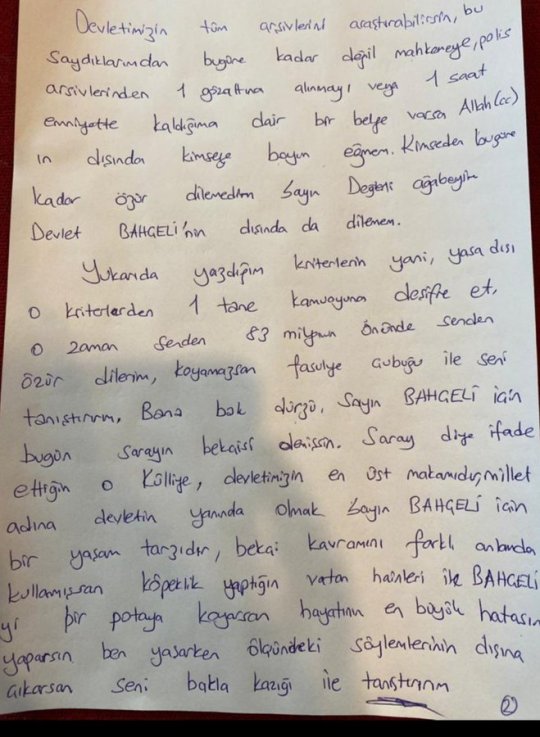 Devletimizin tüm arşivlerini araştırabilirsin, bu
saydıklarımdan bugüne kadar değil mahkemeye, polis
arşivlerinden 1 gözaltına alınmayı veya 1 saat
emniyette kaldığıma dair bir belge varsa Allah (cc)
ın dışında kimseye boyun eğmem. Kimseden bugüne
kadar özür dilemedim Sayın Değerli ağabeyim
Devlet BAHÇELİ'nin dışında da dilemem.
Yukarıda yazdığım kriterlerin yani, yasa dışı
o kriterlerden 1 tane kamuoyuna deşifre et,
o zaman senden 83 milyonun önünde senden
özür dilerim, koyamazsan fasulye çubuğu ile seni
tanıştırırım, Bana bak dürzü, Sayın BAHÇELİ için
bugün sarayın bekçisi demişsin. Saray diye ifade
ettiğin o Külliye, devletimizin en üst makamıdır, millet
adına devletin yanında olmak Sayın BAHÇELİ için
bir yaşam tarzıdır, bekçi kavramını farklı anlamda
kullamışsan köpeklik yaptığın vatan hainleri ile BAHÇELİ
yi bir potaya koyarsan hayatının en büyük hatasın
yaparsın ben yaşarken ölçündeki söylemlerinin dışına
çıkarsan seni bakla kazığı ile tanıştırırım
2